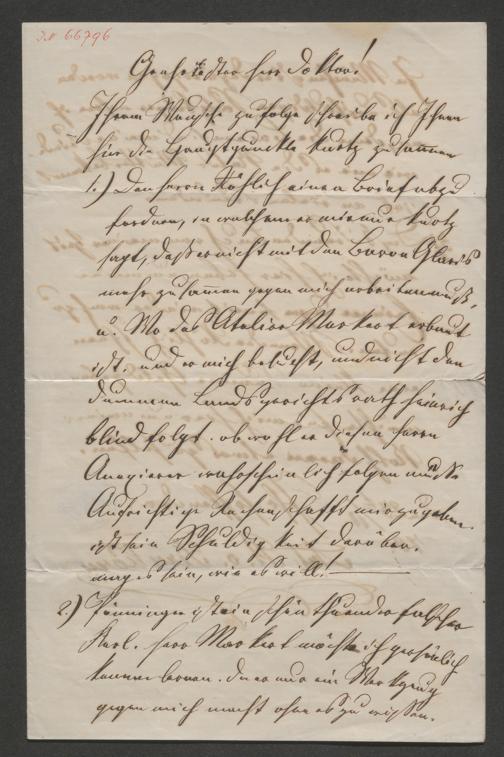 J.N 66796
Geehrtester Herr Doktor!
Ihrem Wunsche zu folge schreibe ich Ihnen
hier die Hauptpunkte kurtz zusammen
1.) Den Herrn Fröhlich einen Brief abzu
fordern, in welchem er mir nur kurtz
sagt, daß er nicht mit den Baron Glaris
mehr zusammen gegen mich arbeiten muß,
u. Wo das Atelier Markart erbaut
ist. und er mich besucht, und nicht den
dummen Landsgerichtsrath Heinrich
blind folgt. obwohl er diesen Herrn
wahrscheinlich folgen müßte
Aufrichtige Rechenschafft mir zu geben
ist sein Schuldigkeit darüber.
mag es sein, wie es will!
2.) ist ein schön thuender falscher
Kerl. Herr Markart möchte ich persönlich
kennen lernen. da er nur ein Werkzeug
gegen mich macht ohne es zu wissen.